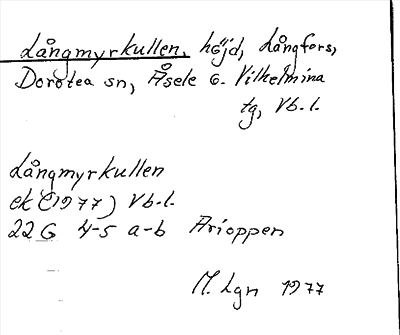 Långmyrkullen, höjd, Långfors,
Dorotea sn, Åsele o. Vilhelmina
tg, Vb.l.
Långmyrkullen
ek (1977) Vb.l.
22 G 4-5 a-b Arioppen
M. Lgn 1977